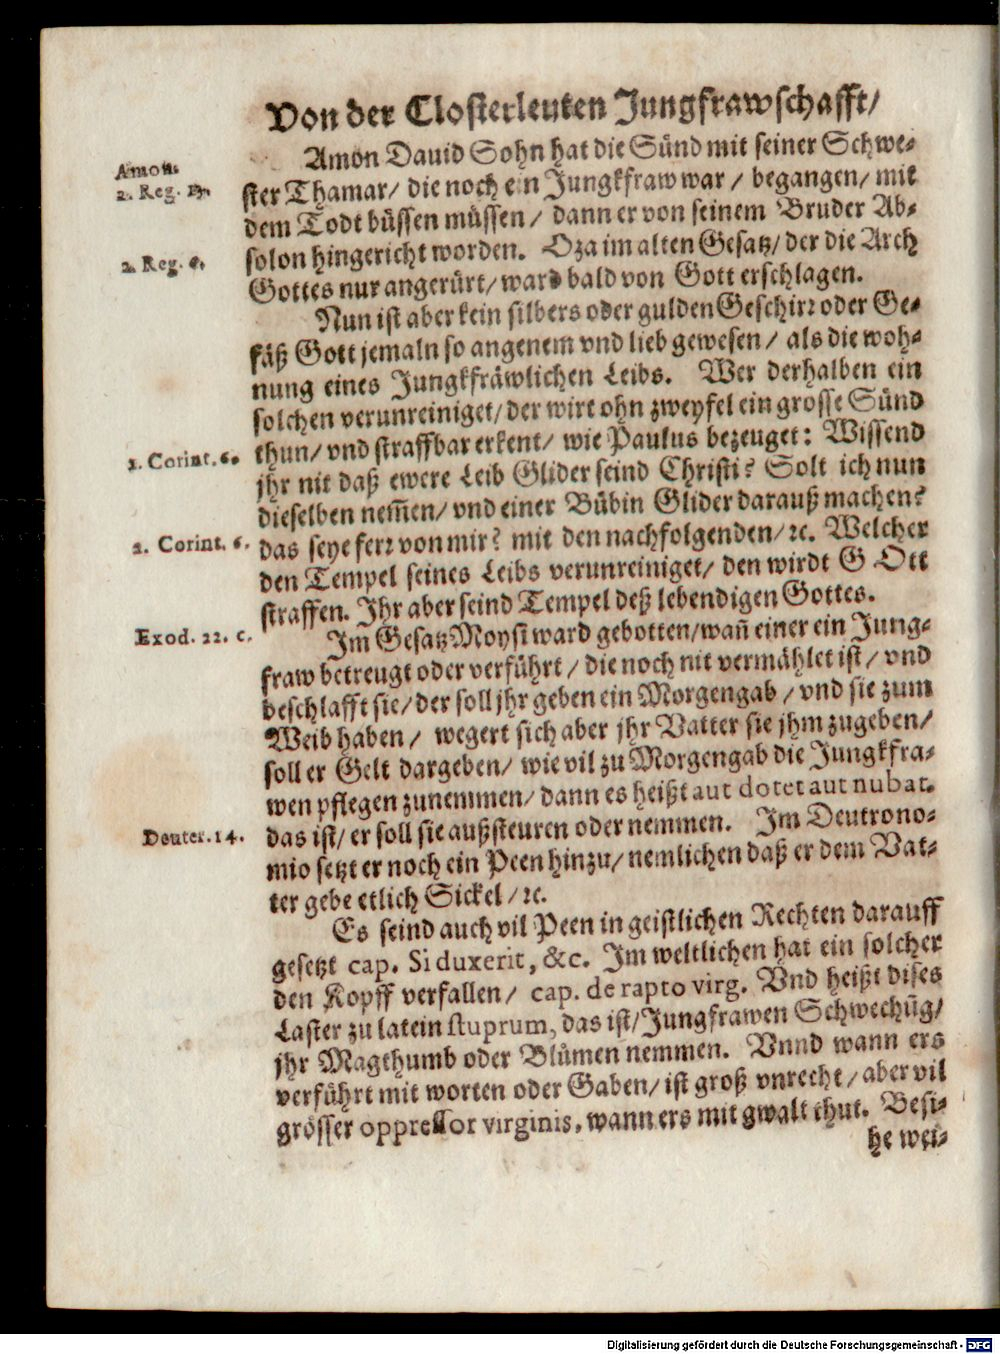 Von der Closterleuten Jungfrawschafft/
Amon Dauid Sohn hat die Sünd mit seiner Schwe-
Amon.
2. Reg. 13.
ster Thamar/ die noch ein Jungkfraw war / begangen/ mit
dem Todt büssen müssen / dann er von seinem Bruder Ab-
solon hingericht worden. Oza im alten Gesatz/ der die Arch
2. Reg. 6.
Gottes nur angerürt/ ward bald von Gott erschlagen.
Nun ist aber kein silbers oder gulden Geschirr oder Ge-
fäß Gott jemaln so angenem vnd lieb gewesen / als die woh-
nung eines Jungkfräwlichen Leibs. Wer derhalben ein
solchen verunreiniget/ der wirt ohn zweyfel ein grosse Sünd
thun/ vnd straffbar erkent/ wie Paulus bezeuget: Wissend
1. Corint. 6.
jhr nit daß ewere Leib Glider seind Christi? Solt ich nun
dieselben nem̃en/ vnd einer Bübin Glider darauß machen?
das seye ferr von mir? mit den nachfolgenden/ ꝛc. Welcher
2. Corint. 6.
den Tempel seines Leibs verunreiniget/ den wirdt GOtt
straffen. Ihr aber seind Tempel deß lebendigen Gottes.
Im Gesatz Moysi ward gebotten/ wañ einer ein Jung-
Exod. 22. c.
fraw betreugt oder verführt / die noch nit vermählet ist / vnd
beschlafft sie/ der soll jhr geben ein Morgengab / vnd sie zum
Weib haben / wegert sich aber jhr Vatter sie jhm zugeben/
soll er Gelt dargeben/ wie vil zu Morgengab die Jungkfra-
wen pflegen zunemmen/ dann es heißt aut dotet aut nubat.
das ist/ er soll sie außsteuren oder nemmen. Im Deutrono-
Deuter. 14.
mio setzt er noch ein Peen hinzu/ nemlichen daß er dem Vat-
ter gebe etlich Sickel / ꝛc.
Es seind auch vil Peen in geistlichen Rechten darauff
gesetzt cap. Si duxerit, &c. Im weltlichen hat ein solcher
den Kopff verfallen / cap. de rapto virg. Vnd heißt dises
Laster zu latein stuprum, das ist/ Jungfrawen Schwechũg/
jhr Magthumb oder Blůmen nemmen. Vnnd wann ers
verführt mit worten oder Gaben/ ist groß vnrecht / aber vil
grösser oppressor virginis, wann ers mit gwalt thut. Besi-
he wei-
Digitalisierung gefördert durch die Deutsche Forschungsgemeinschaft - DFG